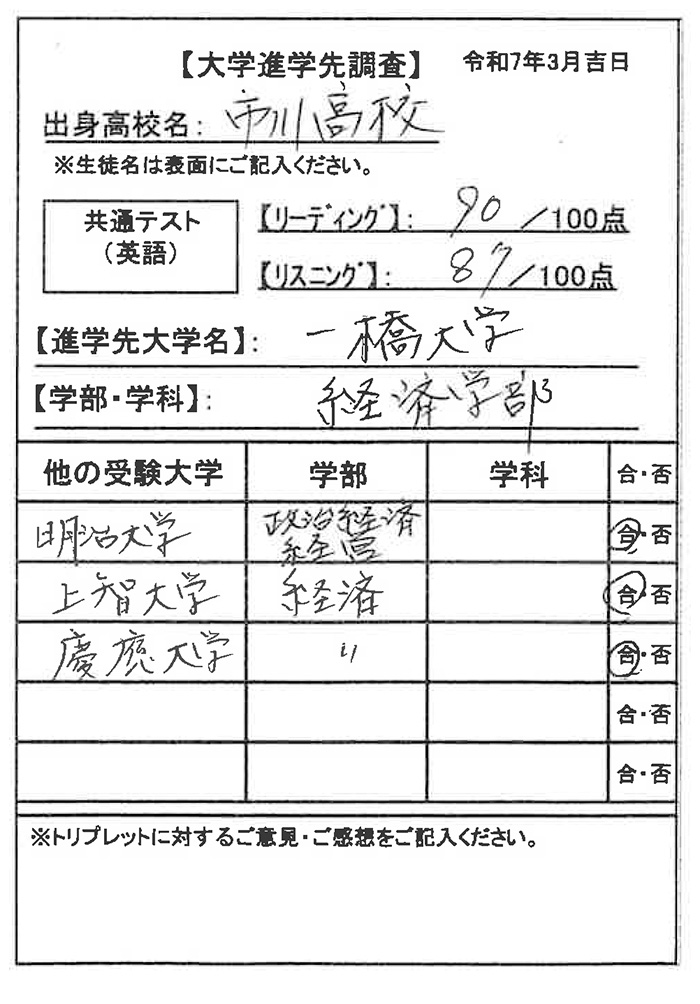 【大学進学先調査】 令和7年3月吉日
出身高校名: 市川高校
※生徒名は表面にご記入ください。
共通テスト
(英語)
【リーディング】: 90 /100点
【リスニング】: 87 /100点
【進学先大学名】: 一橋大学
【学部・学科】: 経済学部
他の受験大学 学部 学科 合・否
明治大学 政治経済 合・否
経営
上智大学 経済 合・否
慶應大学 〃 合・否
合・否
合・否
※トリプレットに対するご意見・ご感想をご記入ください。